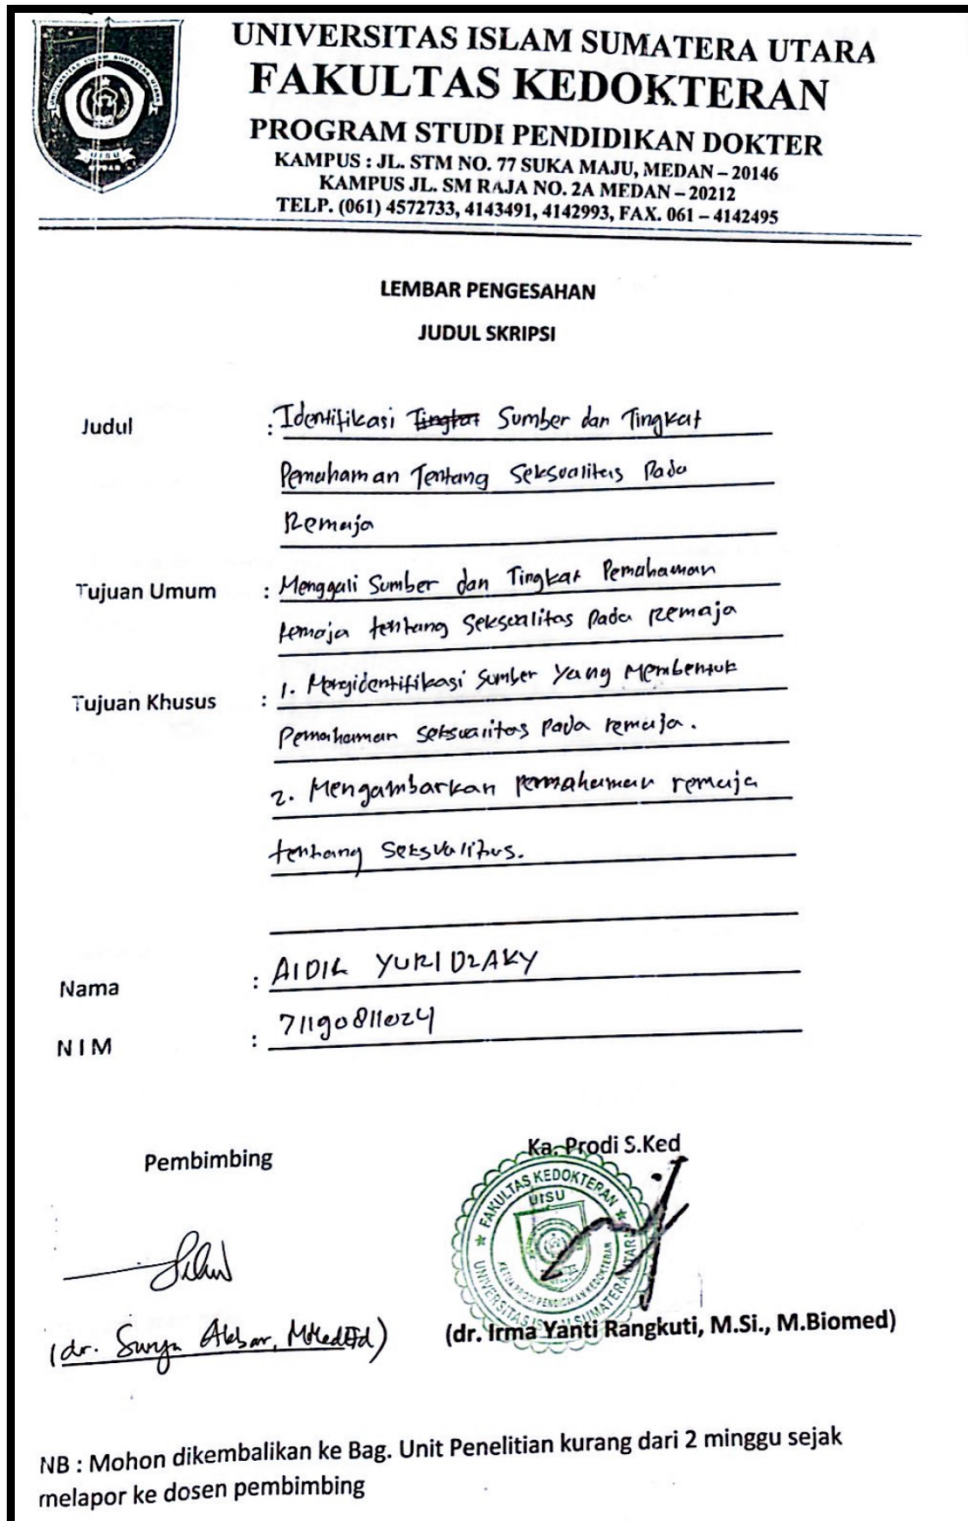 UNIVERSITAS ISLAM SUMATERA UTARA
FAKULTAS KEDOKTERAN
PROGRAM STUDI PENDIDIKAN DOKTER
KAMPUS : JL. STM NO. 77 SUKA MAJU, MEDAN – 20146
KAMPUS JL. SM RAJA NO. 2A MEDAN – 20212
TELP. (061) 4572733, 4143491, 4142993, FAX. 061 – 4142495
UISU
LEMBAR PENGESAHAN
JUDUL SKRIPSI
Judul : Identifikasi Tingkat Sumber dan Tingkat
Pemahaman Tentang Seksualitas Pada
Remaja
Tujuan Umum : Menggali Sumber dan Tingkat Pemahaman
remaja tentang Seksualitas Pada remaja
Tujuan Khusus : 1. Mengidentifikasi Sumber Yang Membentuk
Pemahaman Seksualitas Pada remaja.
2. Mengambarkan pemahaman remaja
tentang Seksualitas.
Nama : AIDIL YURI DZAKY
N I M : 71190811024
Pembimbing
Ka. Prodi S.Ked
FAKULTAS KEDOKTERAN
UISU
KETUA PRODI PENDIDIKAN KEDOKTERAN
UNIVERSITAS ISLAM SUMATERA UTARA
(dr. Surya Akbar, MMedEd)
(dr. Irma Yanti Rangkuti, M.Si., M.Biomed)
NB : Mohon dikembalikan ke Bag. Unit Penelitian kurang dari 2 minggu sejak
melapor ke dosen pembimbing